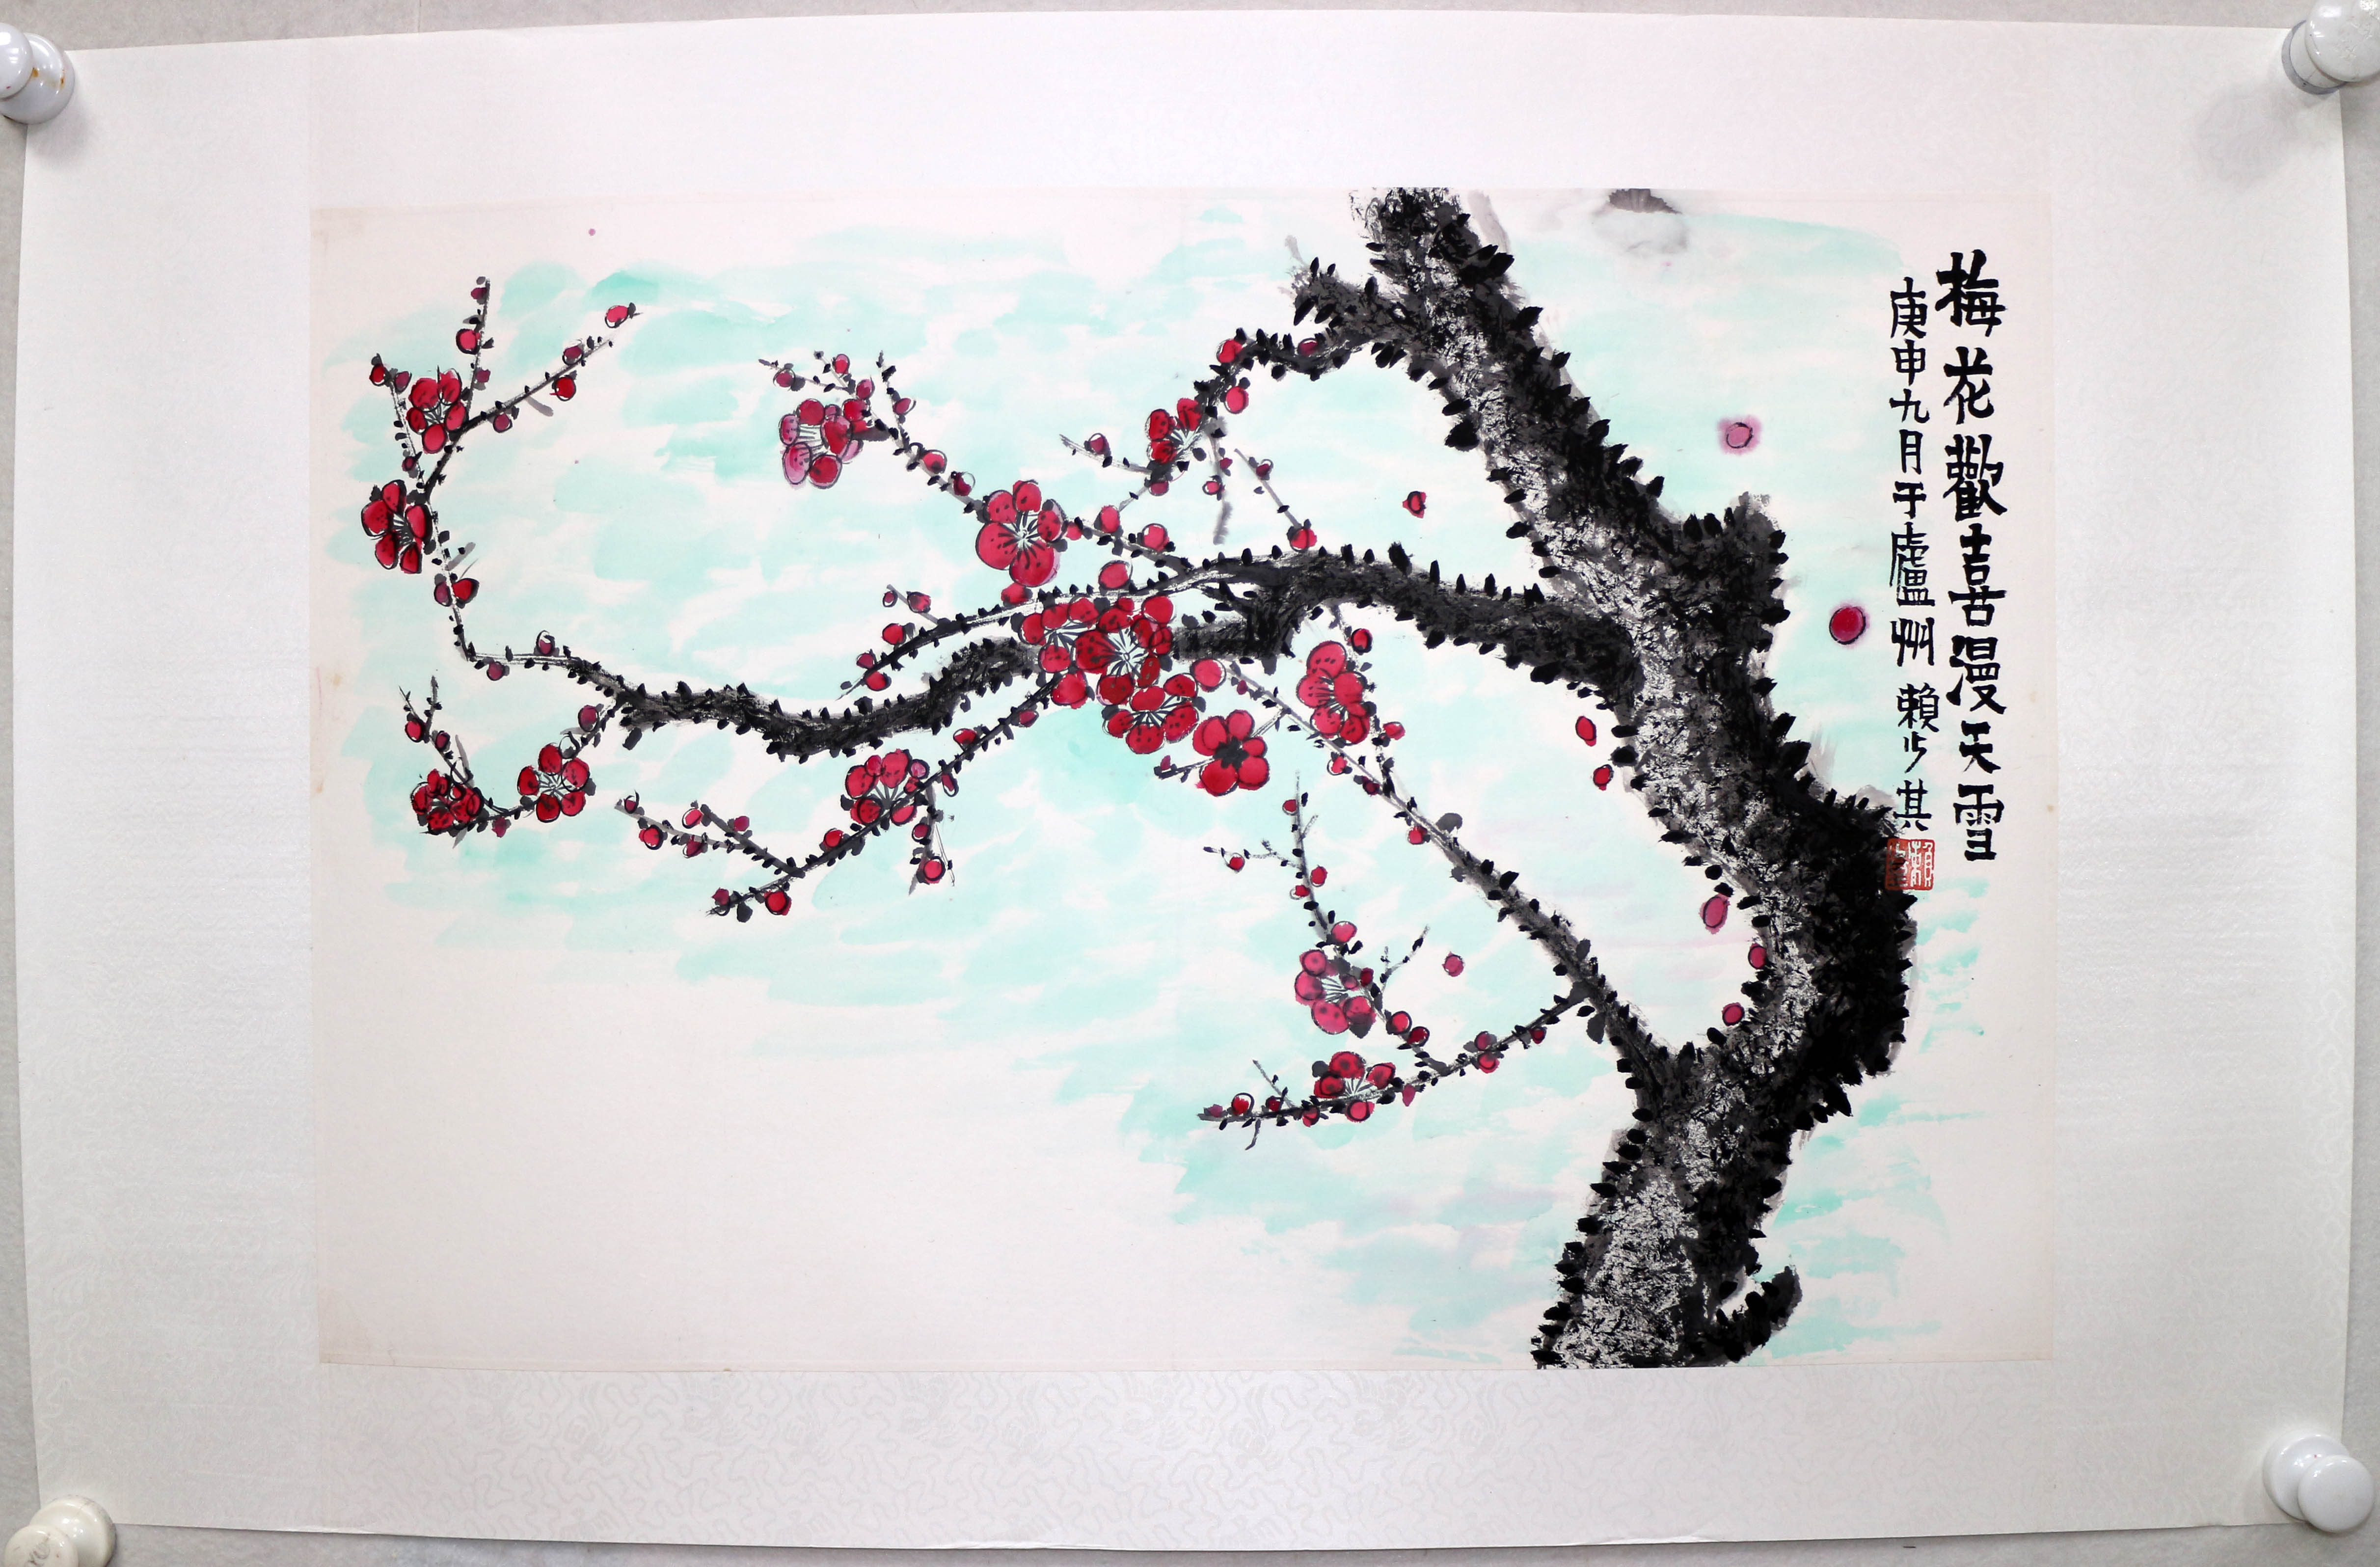 梅花歡喜漫天雪
庚申九月于廬州 賴少其